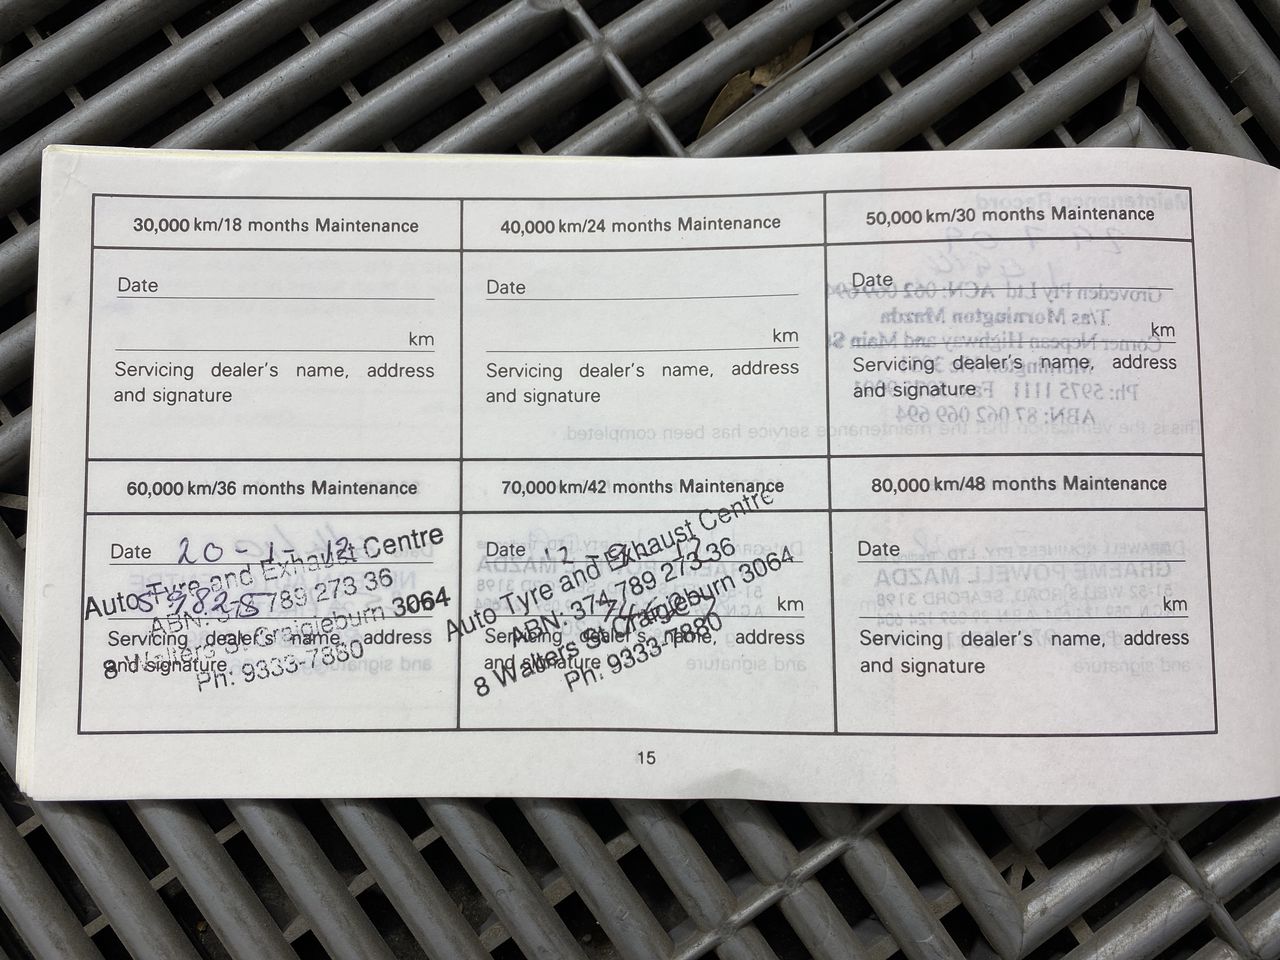 30,000 km/18 months Maintenance
Date
km
Servicing dealer's name, address
and signature
40,000 km/24 months Maintenance
Date
km
Servicing dealer's name, address
and signature
50,000 km/30 months Maintenance
Date
km
Servicing dealer's name, address
and signature
60,000 km/36 months Maintenance
Date 20-1-12
Auto Tyre and Exhaust Centre
ABN: 374 789 273 36
8 Walters St Craigieburn 3064
Ph: 9333-7880
Servicing dealer's name, address
and signature
70,000 km/42 months Maintenance
Date
km
Auto Tyre and Exhaust Centre
ABN: 374 789 273 36
8 Walters St Craigieburn 3064
Ph: 9333-7880
Servicing dealer's name, address
and signature
80,000 km/48 months Maintenance
Date
km
Servicing dealer's name, address
and signature
15